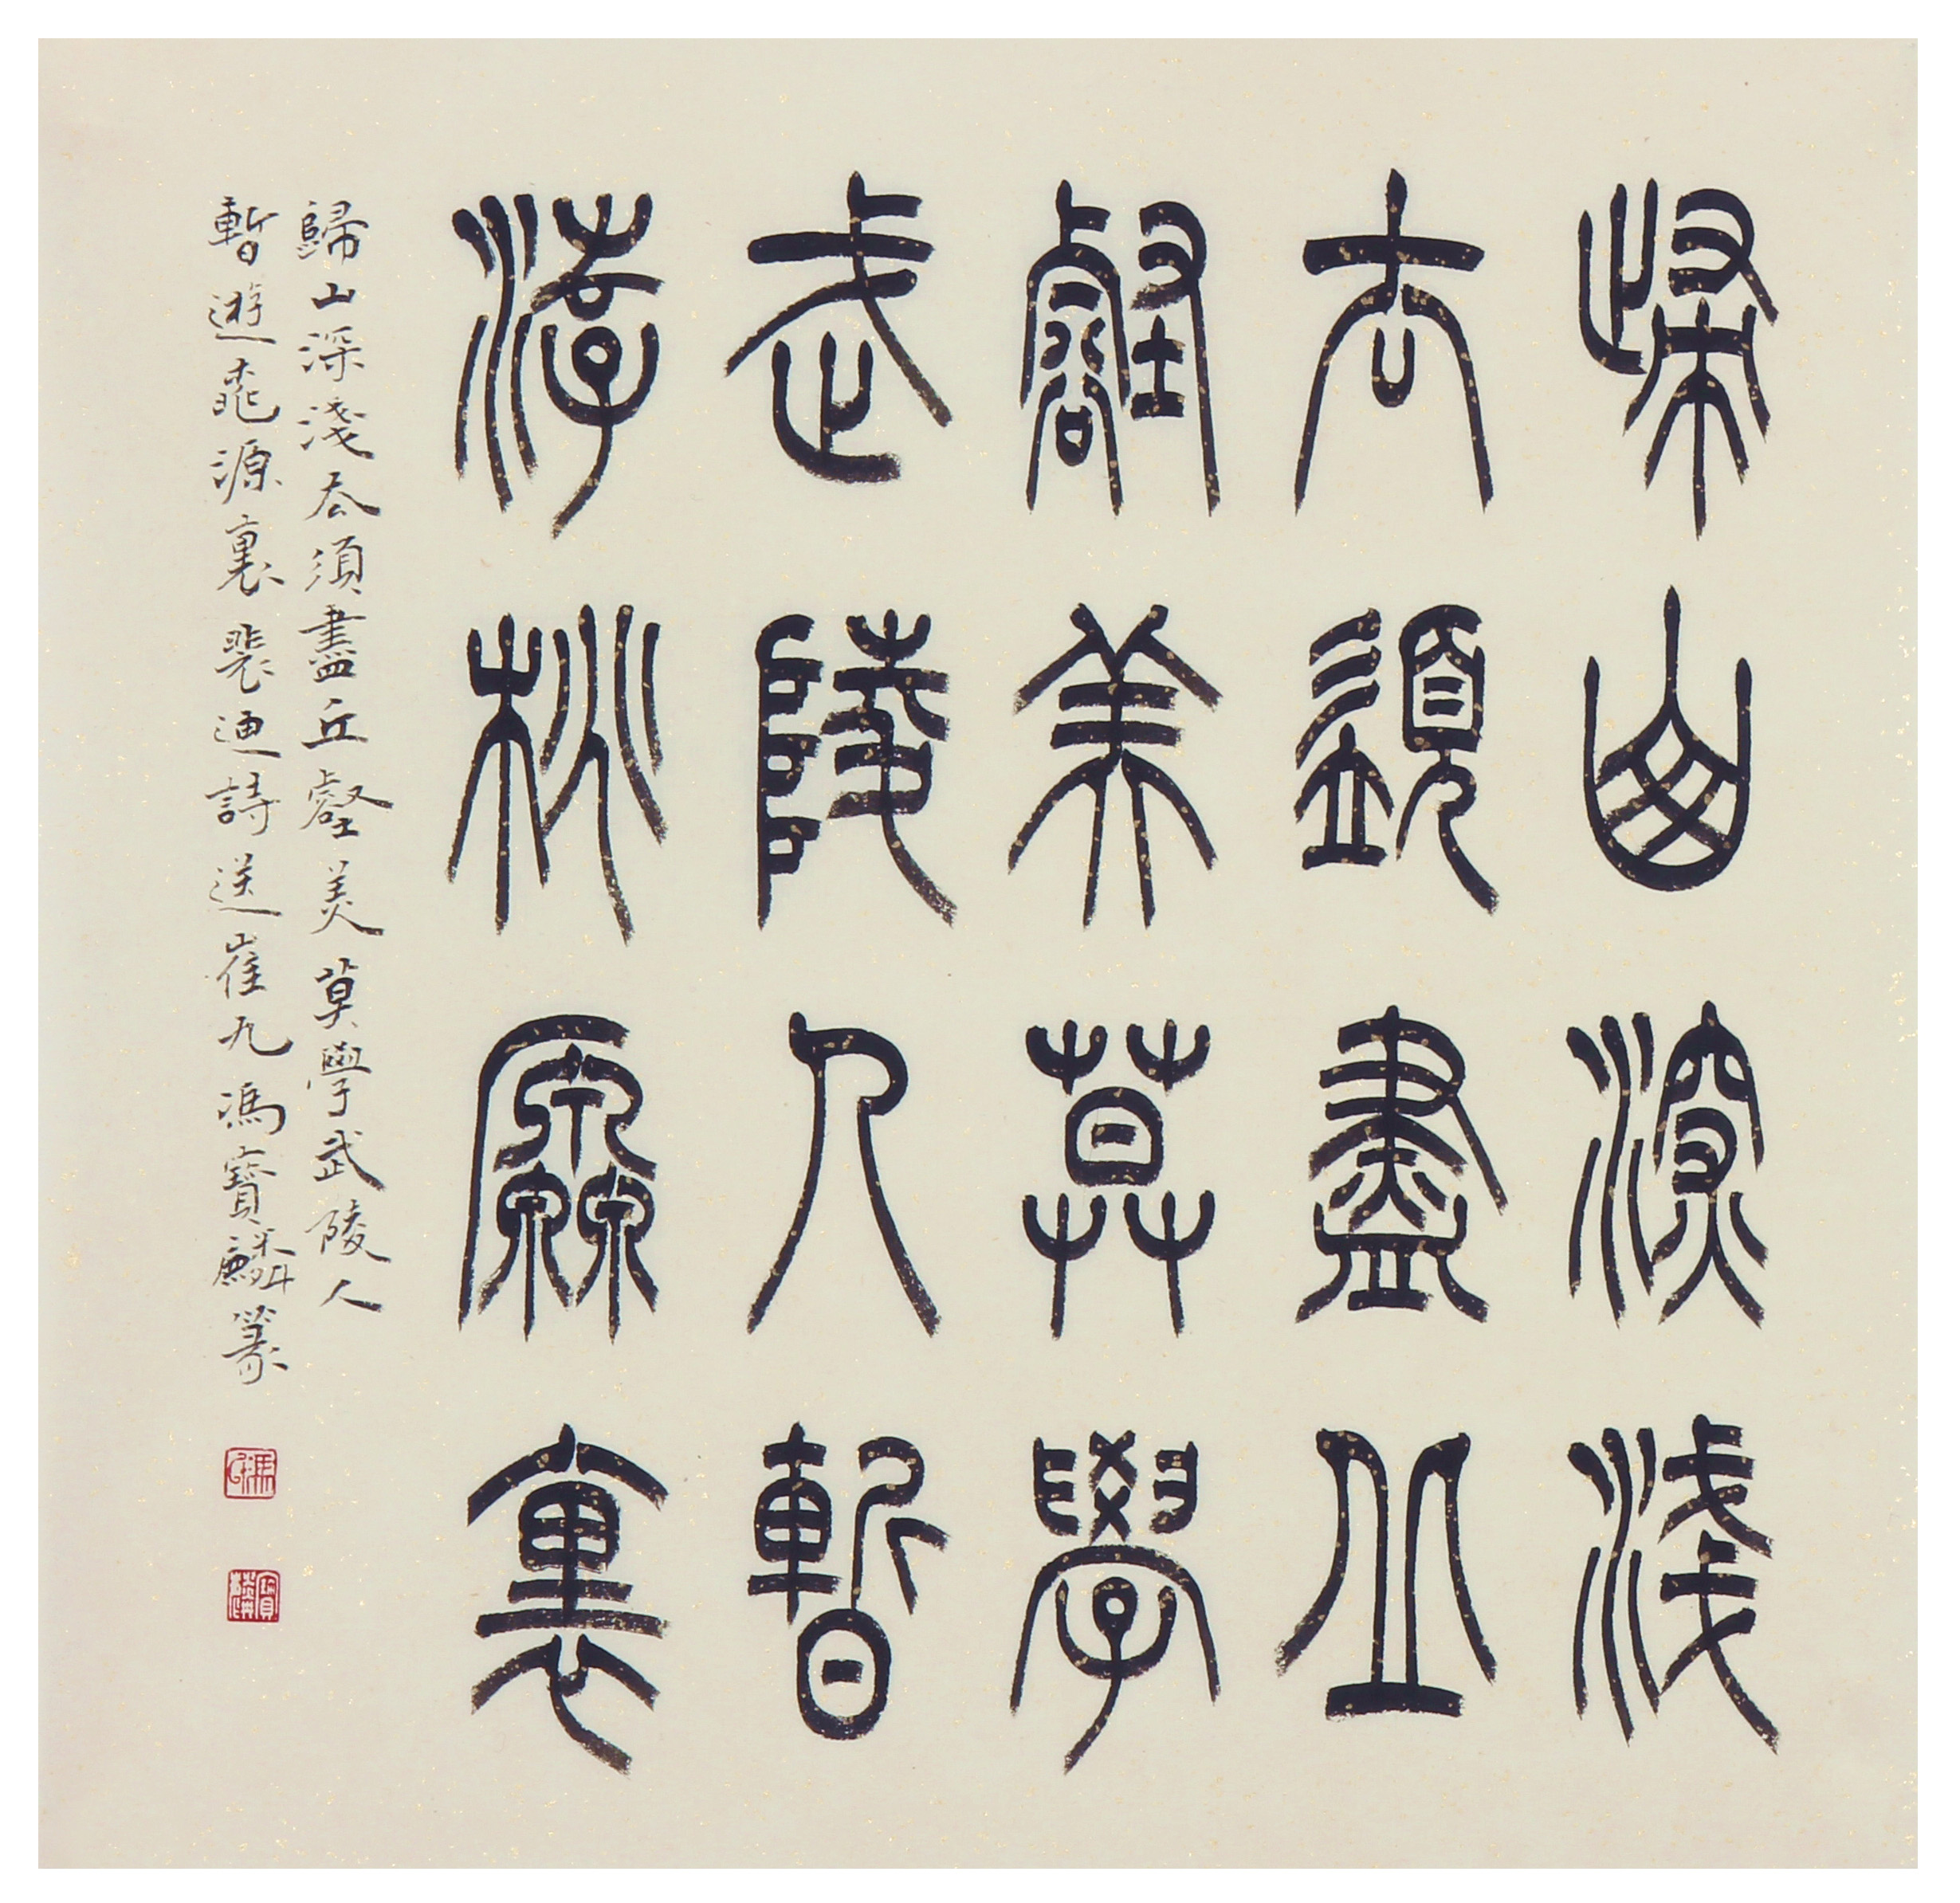 歸山深淺
去須盡丘
壑美莫學
武陵人暫
游桃源裏
歸山深淺去須盡丘壑美莫學武陵人
暫遊桃源裏裴迪詩送崔九馮寶麟篆
馮
寶麟